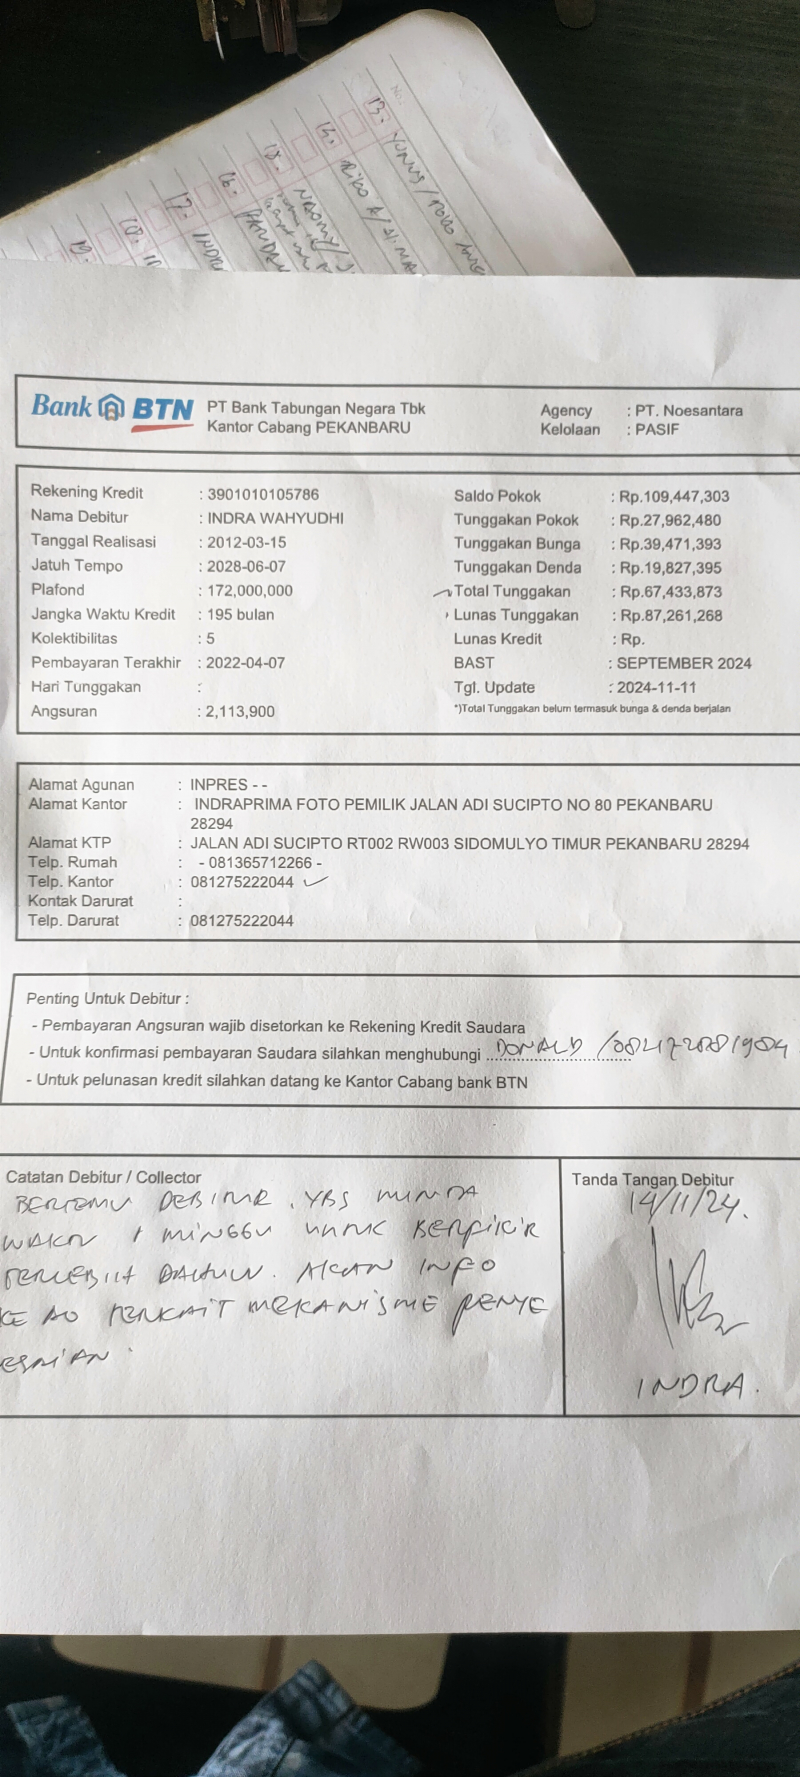 No.
13. YUNUS /
14. RIKO A /
15. NAOMY /
16.
17. INDR
18.
19.
Bank BTN
PT Bank Tabungan Negara Tbk
Kantor Cabang PEKANBARU
Agency : PT. Noesantara
Kelolaan : PASIF
Rekening Kredit : 3901010105786
Nama Debitur : INDRA WAHYUDHI
Tanggal Realisasi : 2012-03-15
Jatuh Tempo : 2028-06-07
Plafond : 172,000,000
Jangka Waktu Kredit : 195 bulan
Kolektibilitas : 5
Pembayaran Terakhir : 2022-04-07
Hari Tunggakan :
Angsuran : 2,113,900
Saldo Pokok : Rp.109,447,303
Tunggakan Pokok : Rp.27,962,480
Tunggakan Bunga : Rp.39,471,393
Tunggakan Denda : Rp.19,827,395
Total Tunggakan : Rp.67,433,873
Lunas Tunggakan : Rp.87,261,268
Lunas Kredit : Rp.
BAST : SEPTEMBER 2024
Tgl. Update : 2024-11-11
*)Total Tunggakan belum termasuk bunga & denda berjalan
Alamat Agunan : INPRES - -
Alamat Kantor : INDRAPRIMA FOTO PEMILIK JALAN ADI SUCIPTO NO 80 PEKANBARU
28294
Alamat KTP : JALAN ADI SUCIPTO RT002 RW003 SIDOMULYO TIMUR PEKANBARU 28294
Telp. Rumah : - 081365712266 -
Telp. Kantor : 081275222044
Kontak Darurat :
Telp. Darurat : 081275222044
Penting Untuk Debitur :
- Pembayaran Angsuran wajib disetorkan ke Rekening Kredit Saudara
- Untuk konfirmasi pembayaran Saudara silahkan menghubungi DONALD /
- Untuk pelunasan kredit silahkan datang ke Kantor Cabang bank BTN
Catatan Debitur / Collector
BERTEMU DEBITUR. YBS MINTA
WAKTU 1 MINGGU UNTUK BERFIKIR
TERLEBIH DAHULU. AKAN INFO
KE AO TERKAIT MEKANISME PENYE
ESAIAN.
Tanda Tangan Debitur
14/11/24.
INDRA.